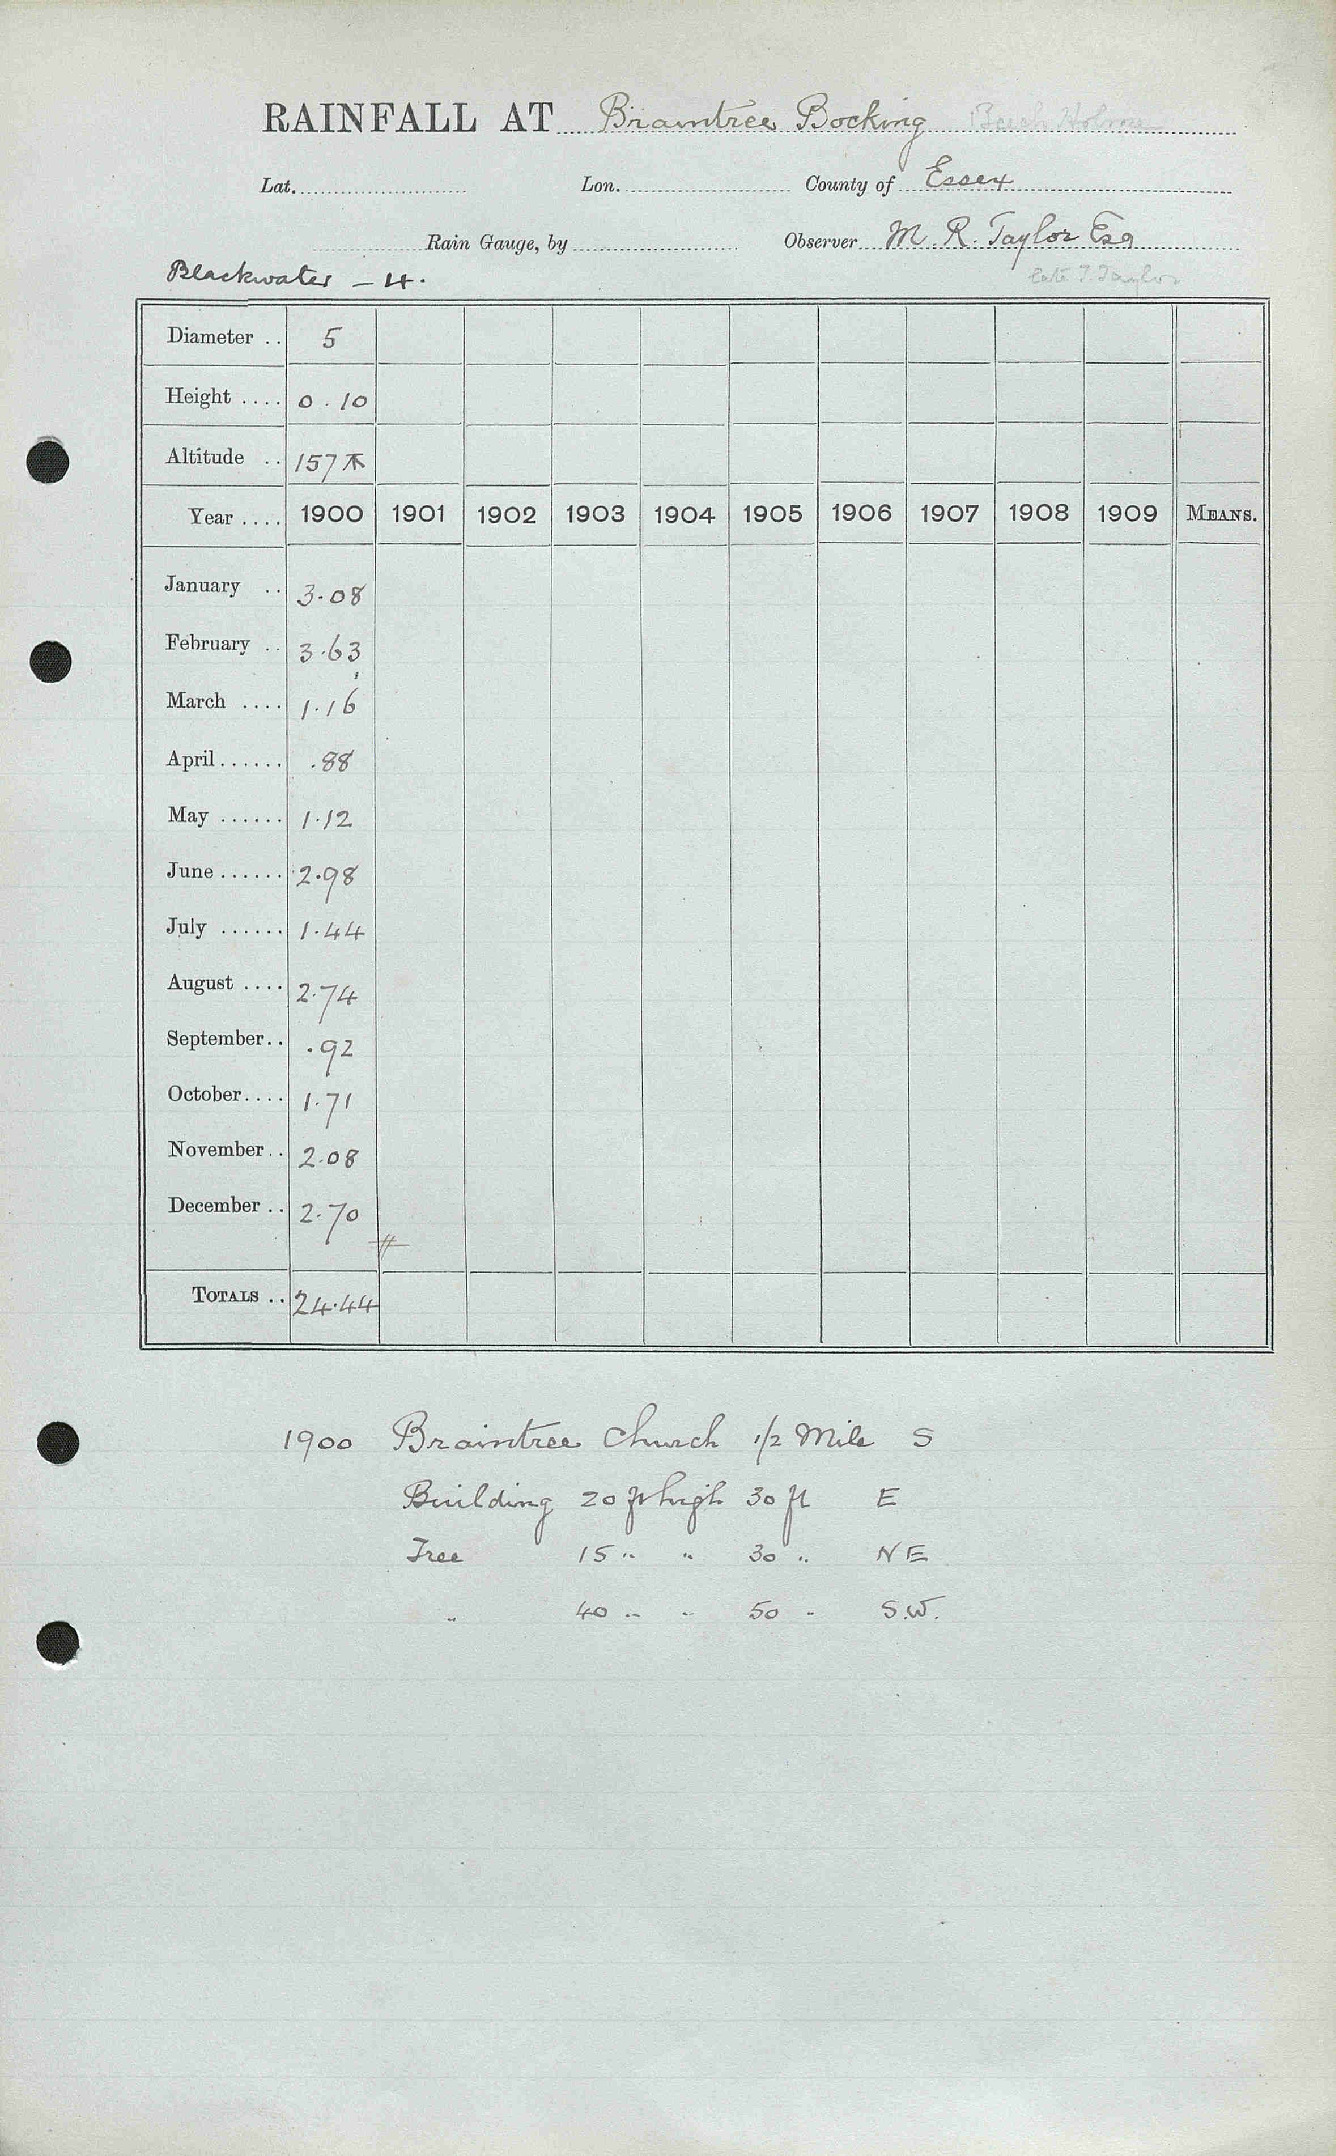 RAINFALL AT Braintree Bocking Beech Holme
Lat. Lon. County of Essex
Rain Gauge, by Observer M. R. Taylor Esq
Blackwater – 4. late T Taylor
Diameter .. 5
Height .... 0.10
Altitude .. 157
Year .... 1900 1901 1902 1903 1904 1905 1906 1907 1908 1909 MEANS.
January .. 3.08
February .. 3.63
March .... 1.16
April ...... .88
May ...... 1.12
June ...... 2.98
July ...... 1.44
August .... 2.74
September.. .92
October.... 1.71
November.. 2.08
December .. 2.70
TOTALS .. 24.44
1900 Braintree Church 1/2 Mile S
Building 20 ft high 30 ft E
Tree 15 " " 30 " NE
" 40 " " 50 " S.W.